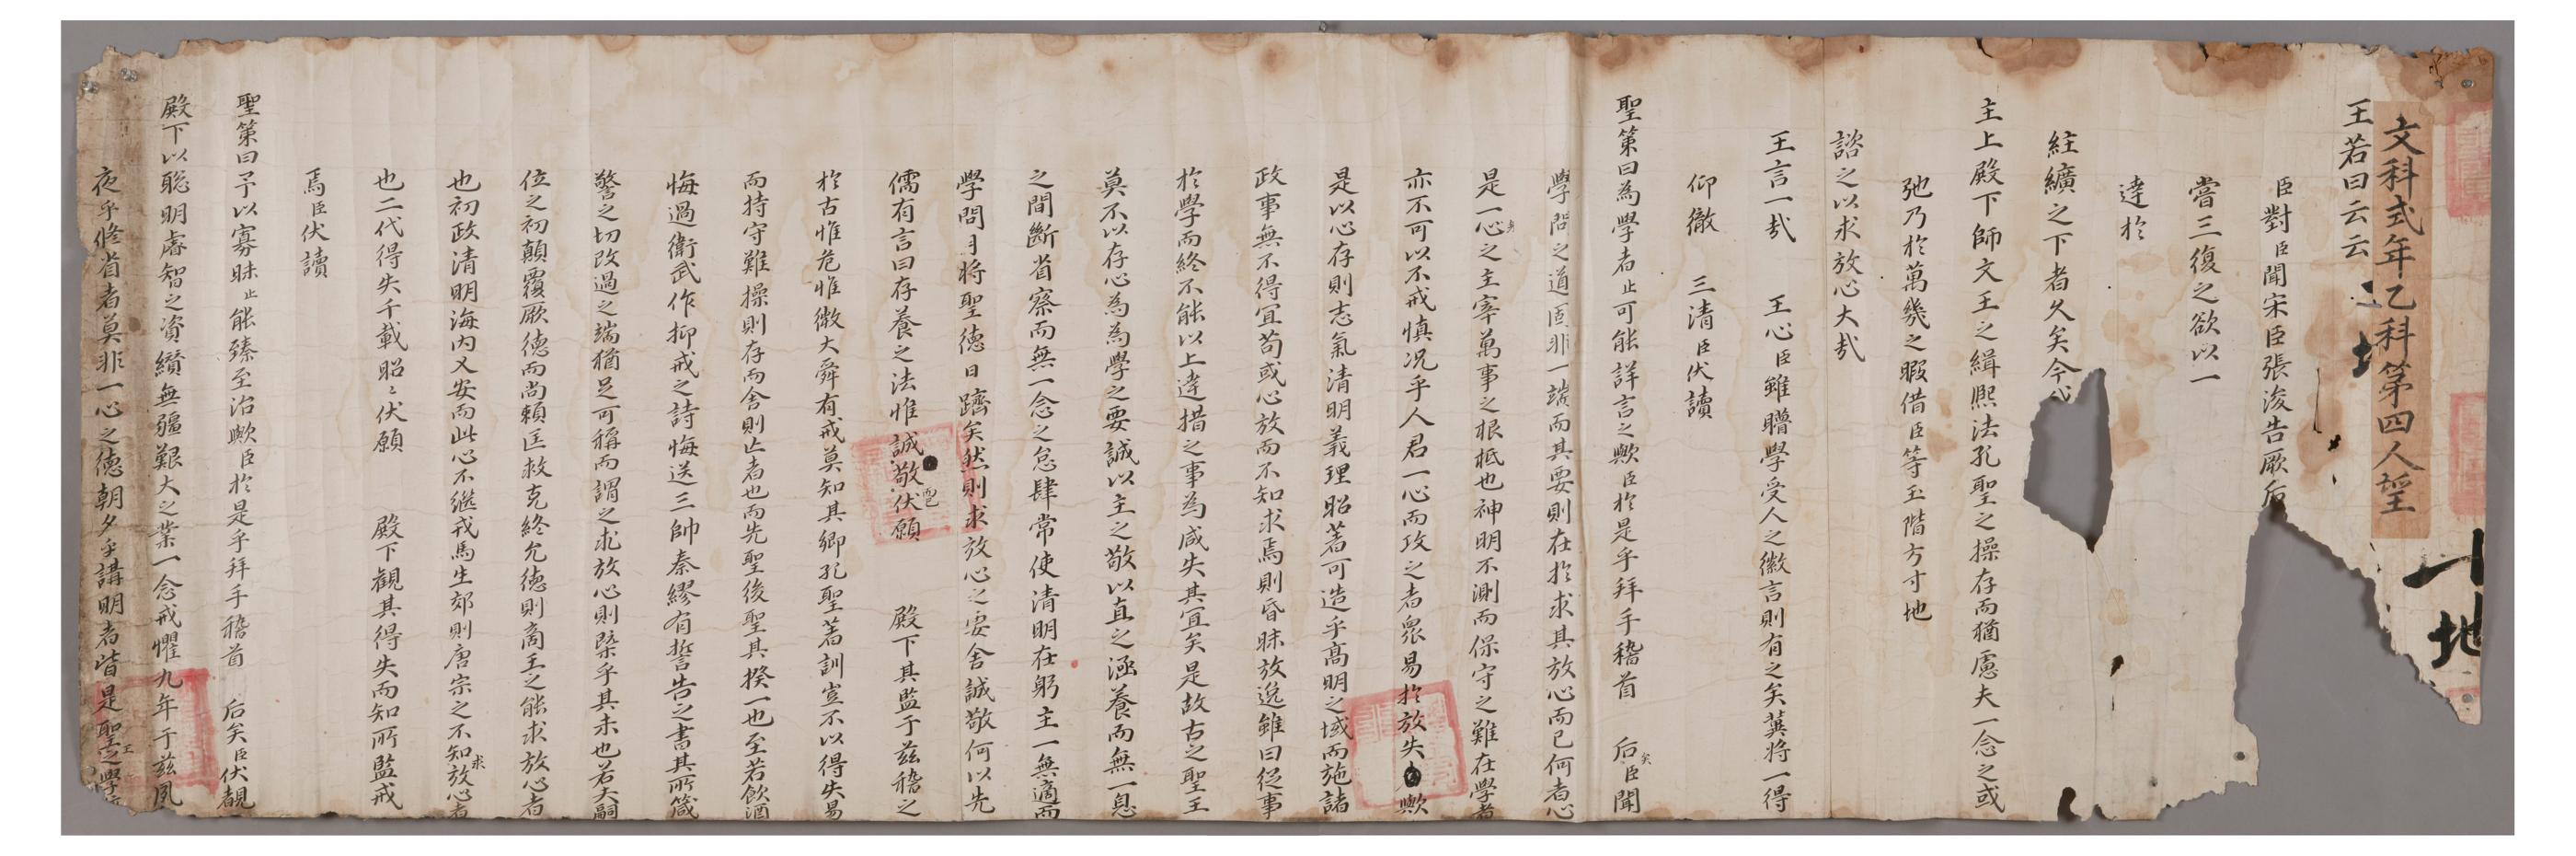 文科式年乙科第四人望
一
地
王若曰云云
臣對臣聞宋臣張浚告厥后
嘗三復之欲以一
達於
紸纊之下者久矣今
主上殿下師文王之緝熙法孔聖之操存而猶慮夫一念之或
弛乃於萬幾之暇借臣等玉階方寸地
諮之以求放心大哉
王言一哉 王心臣雖瞢學受人之徽言則有之矣冀將一得
仰徹 三清臣伏讀
聖策曰為學者止可能詳言之歟臣於是乎拜手稽首 后矣臣聞
學問之道固非一端而其要則在於求其放心而已何者心
是一身之主宰萬事之根柢也神明不測而保守之難在學者
亦不可以不戒慎况乎人君一心而攻之者衆易於放失歟
是以心存則志氣清明義理昭著可造乎高明之域而施諸
政事無不得宜苟或心放而不知求焉則昏昧放逸雖曰從事
於學而終不能以上達措之事為咸失其宜矣是故古之聖王
莫不以存心為為學之要誠以主之敬以直之涵養而無一息
之間斷省察而無一念之怠肆常使清明在躬主一無適而
學問日將聖德日躋矣然則求放心之要舍誠敬何以先
儒有言曰存養之法惟誠敬伏願 殿下其監于茲稽之
於古惟危惟微大舜有戒莫知其鄉孔聖著訓豈不以得失易
而持守難操則存而舍則亡者也而先聖後聖其揆一也至若飲酒
悔過衛武作抑戒之詩悔送三帥秦繆有誓告之書其所箴
警之切改過之端猶足可稱而謂之求放心則槩乎其未也若夫嗣
位之初顛覆厥德而尚賴匡救克終允德則商王之能求放心者
也初政清明海内乂安而此心不繼戎馬生郊則唐宗之不知求放心者
也二代得失千載昭昭伏願 殿下觀其得失而知所監戒
焉臣伏讀
聖策曰予以寡昧止能臻至治歟臣於是乎拜手稽首 后矣臣伏覩
殿下以聡明睿智之資纘無疆艱大之業一念戒懼九年于茲夙
夜乎修省者莫非一心之德朝夕乎講明者皆是聖王之學